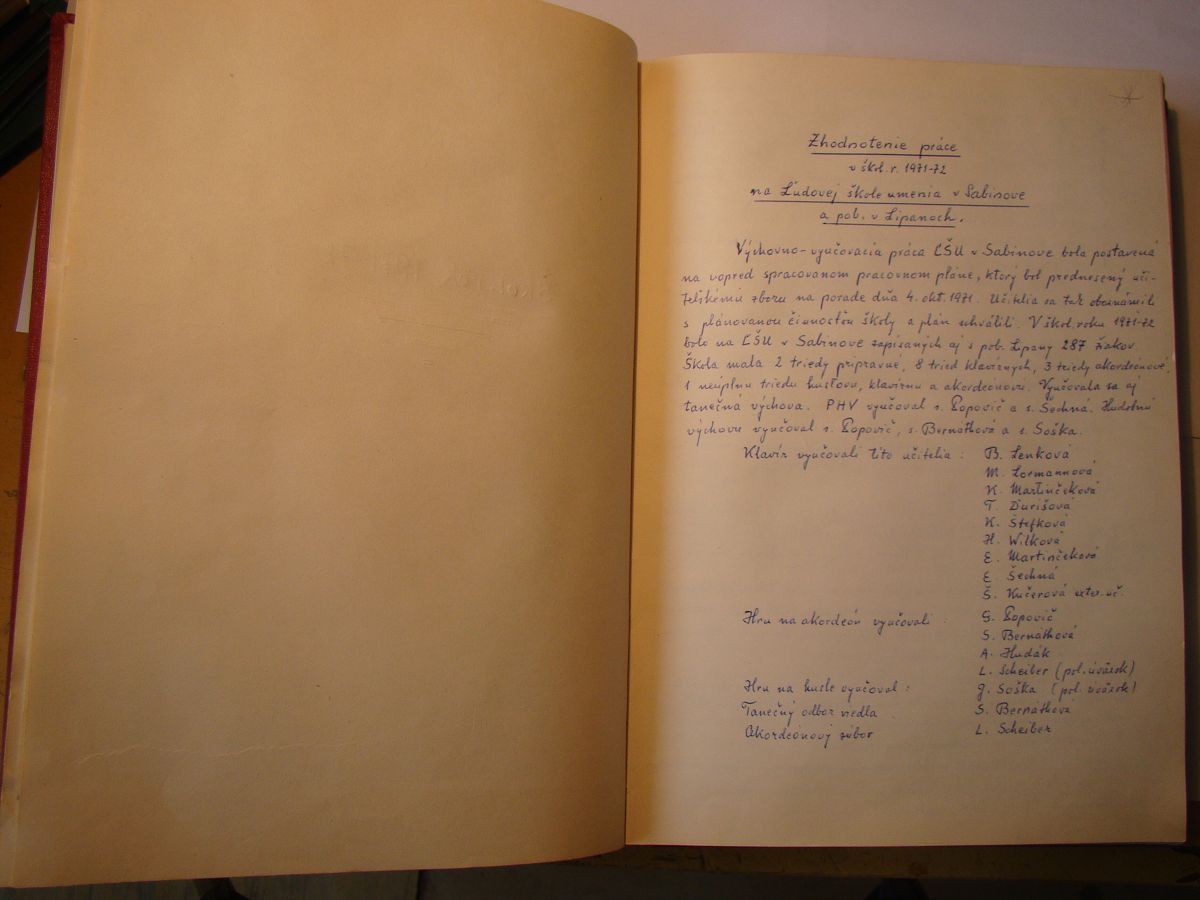 Zhodnotenie práce
v škol. r. 1971-72
na Ľudovej škole umenia v Sabinove
a pob. v Lipanoch.
Výchovno-vyučovacia práca ĽŠU v Sabinove bola postavená
na vopred spracovanom pracovnom pláne, ktorý bol prednesený uči-
teľskému zboru na porade dňa 4. okt. 1971. Učitelia sa tak oboznámili
s plánovanou činnosťou školy a plán schválili. V škol. roku 1971-72
bolo na ĽŠU v Sabinove zapísaných aj s pob. Lipany 287 žiakov.
Škola mala 2 triedy prípravné, 8 tried klavírnych, 3 triedy akordeónové,
1 neúplnu triedu husľovú, klavírnu a akordeónovú. Vyučovala sa aj
tanečná výchova. PHV vyučoval s. Popovič a s. Šechná. Hudobnú
výchovu vyučoval s. Popovič, s. Bernáthová a s. Soška.
Klavír vyučovali títo učitelia : B. Lenková
M. Lormannová
K. Martinčeková
T. Ďurišová
K. Štefková
H. Wilková
E. Martinčeková
E. Šechná
Š. Kučerová exter. uč.
Hru na akordeón vyučovali : G. Popovič
S. Bernáthová
A. Hudák
L. Scheiber (pol. úväzok)
Hru na husle vyučoval : J. Soška (pol. úväzok)
Tanečný odbor viedla : S. Bernáthová
Akordeónový súbor L. Scheiber